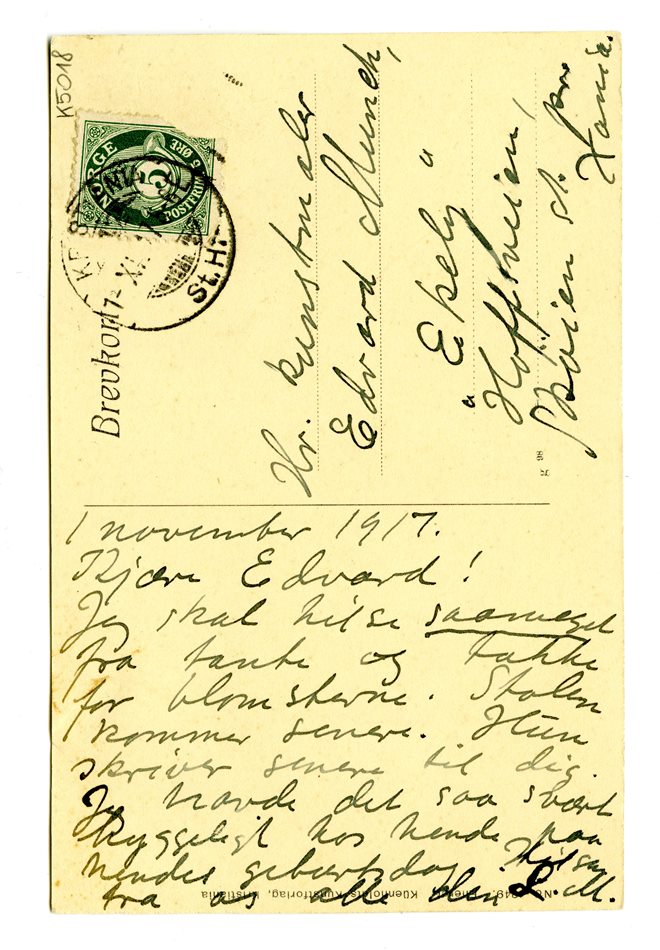 K5018
NORGE
5
POSTFRIM 5 ØRE
St. H.
Brevkort
Hr. kunstmaler
Edvard Munch,
"Ekely"
Hoffsveien,
Skøien st. pr
Xania.
K 98
1 november 1917.
Kjære Edvard!
Jeg skal hilse saameget
fra tante og takke
for blomsterne. Stolen
kommer senere. Hun
skriver senere til dig.
Jeg havde det saa svært
hyggeligt hos hende paa
hendes gebærtsdag. Hilsen
fra os alle Din I. M.
Kunstforlag, Kristiania